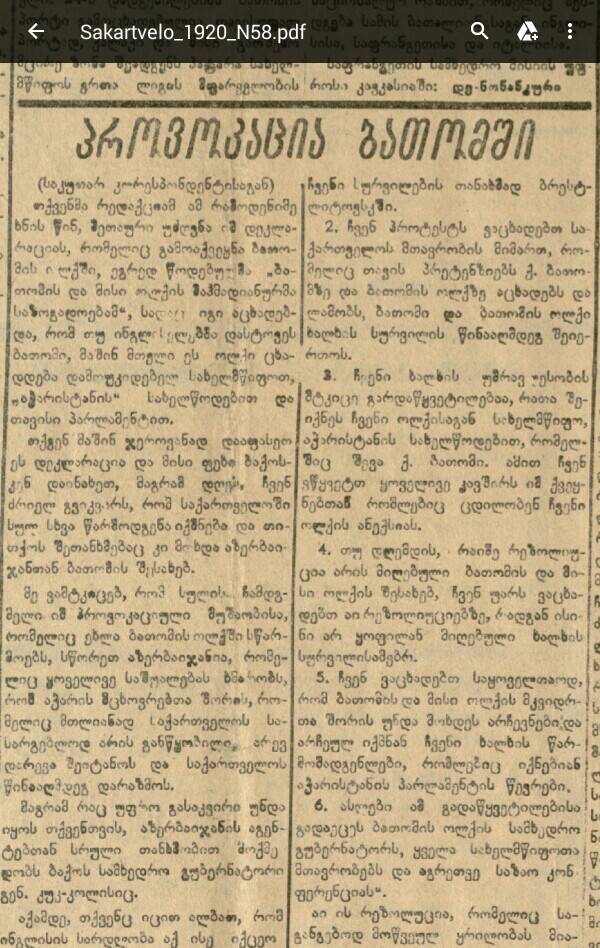 Sakartvelo_1920_N58.pdf
მწიფოს ერთა ლიგის მფარველობის
როსა კავკასიაში: დე-ნონანკური
პროვოკაცია ბათომში
(საკუთარ კორესპონდენტისაგან)
თქვენმა რედაქციამ ამ რამოდენიმე
ხნის წინ, მეთაური უძღვნა იმ დეკლა-
რაციას, რომელიც გამოაქვეყნა ბათო-
მის ოლქში, ეგრედ წოდებულმა „ბა-
თომის და მისი ოლქის მაჰმადიანურმა
საზოგადოებამ“, სადაც იგი აცხადებ-
და, რომ თუ ინგლისელებმა დასტოვეს
ბათომი, მაშინ მთელი ეს ოლქი ცხა-
დდება დამოუკიდებელ სახელმწიფოთ,
„აჭარისტანის“ სახელწოდებით და
თავისი პარლამენტით.
თქვენ მაშინ ჯეროვანად დააფასეთ
ეს დეკლარაცია და მისი ფეხი ბაქოს-
კენ დაინახეთ, მაგრამ დღეს, ჩვენ
ძრიელ გვიკვირს, რომ საქართველოში
სულ სხვა წარმოდგენა იქმნება და თი-
თქოს შეთანხმებაც კი მოხდა აზერბაი-
ჯანთან ბათომის შესახებ.
მე ვამტკიცებ, რომ სულის ჩამდგ-
მელი იმ პროვოკაციული მუშაობისა,
რომელიც ეხლა ბათომის ოლქში სწარ-
მოებს, სწორეთ აზერბაიჯანია, რომე-
ლიც ყოველივე საშუალებას ხმარობს,
რომ აჭარის მცხოვრებთა შორის, რო-
მელიც მთლიანად საქართველოს სა-
სარგებლოდ არის განწყობილი, არევ
დარევა შეიტანოს და საქართველოს
წინააღმდეგ დარაზმოს.
მაგრამ რაც უფრო გასაკვირი უნდა
იყოს თქვენთვის, აზერბაიჯანის აგენ-
ტებთან სრული თანხმობით მოქმე
დობს ბაქოს სამხედრო გუბერნატორი
გენ. კუკ-კოლისიც.
აქამდე, თქვენც იცით ალბათ, რომ
ინგლისის სარდლობა აქ ისე იქცეო
ჩვენი სურვილების თანახმად ბრესტ-
ლიტოვსკში.
2. ჩვენ პროტესტს ვაცხადებთ სა-
ქართველოს მთავრობის მიმართ, რო-
მელიც თავის პრეტენზიებს ქ. ბათო-
მზე და ბათომის ოლქზე აცხადებს და
ლამობს, ბათომი და ბათომის ოლქი
ხალხის სურვილის წინააღმდეგ შეიე-
რთოს.
3. ჩვენი ხალხის უმრავლესობის
მტკიცე გარდაწყვეტილებაა, რათა შე-
იქნეს ჩვენი ოლქისაგან სახელმწიფო,
აჭარისტანის სახელწოდებით, რომელ-
შიც შევა ქ. ბათომი. ამით ჩვენ
ვწყვეტთ ყოველივე კავშირს იმ ქვეყ-
ნებთან რომლებიც ცდილობენ ჩვენი
ოლქის ანექსიას.
4. თუ დღემდის, რაიმე რეზოლიუ-
ცია არის მიღებული ბათომის და მი-
სი ოლქის შესახებ, ჩვენ უარს ვაცხა-
დებთ აი რეზოლიუციებზე, რადგან ისი-
ნი არ ყოფილან მიღებული ხალხის
სურვილისამებრ.
5. ჩვენ ვაცხადებთ საყოველთაოდ,
რომ ბათომის და მისი ოლქის მკვიდრ-
თა შორის უნდა მოხდეს არჩევნები და
არჩეულ იქმნან ჩვენი ხალხის წარ-
მომადგენლები, რომლებიც იქნებიან
აჭარისტანის პარლამენტის წევრები.
6. ასლები ამ გადაწყვეტილებისა
გადაეცეს ბათომის ოლქის სამხედრო
გუბერნატორს, ყველა სახელმწიფოთა
მთავრობებს და აგრეთვე საზაო კონ
ფერენციას“.
აი ის რეზოლუცია, რომელიც სა-
განგებოდ მოწვეულ ყრილობას მია-